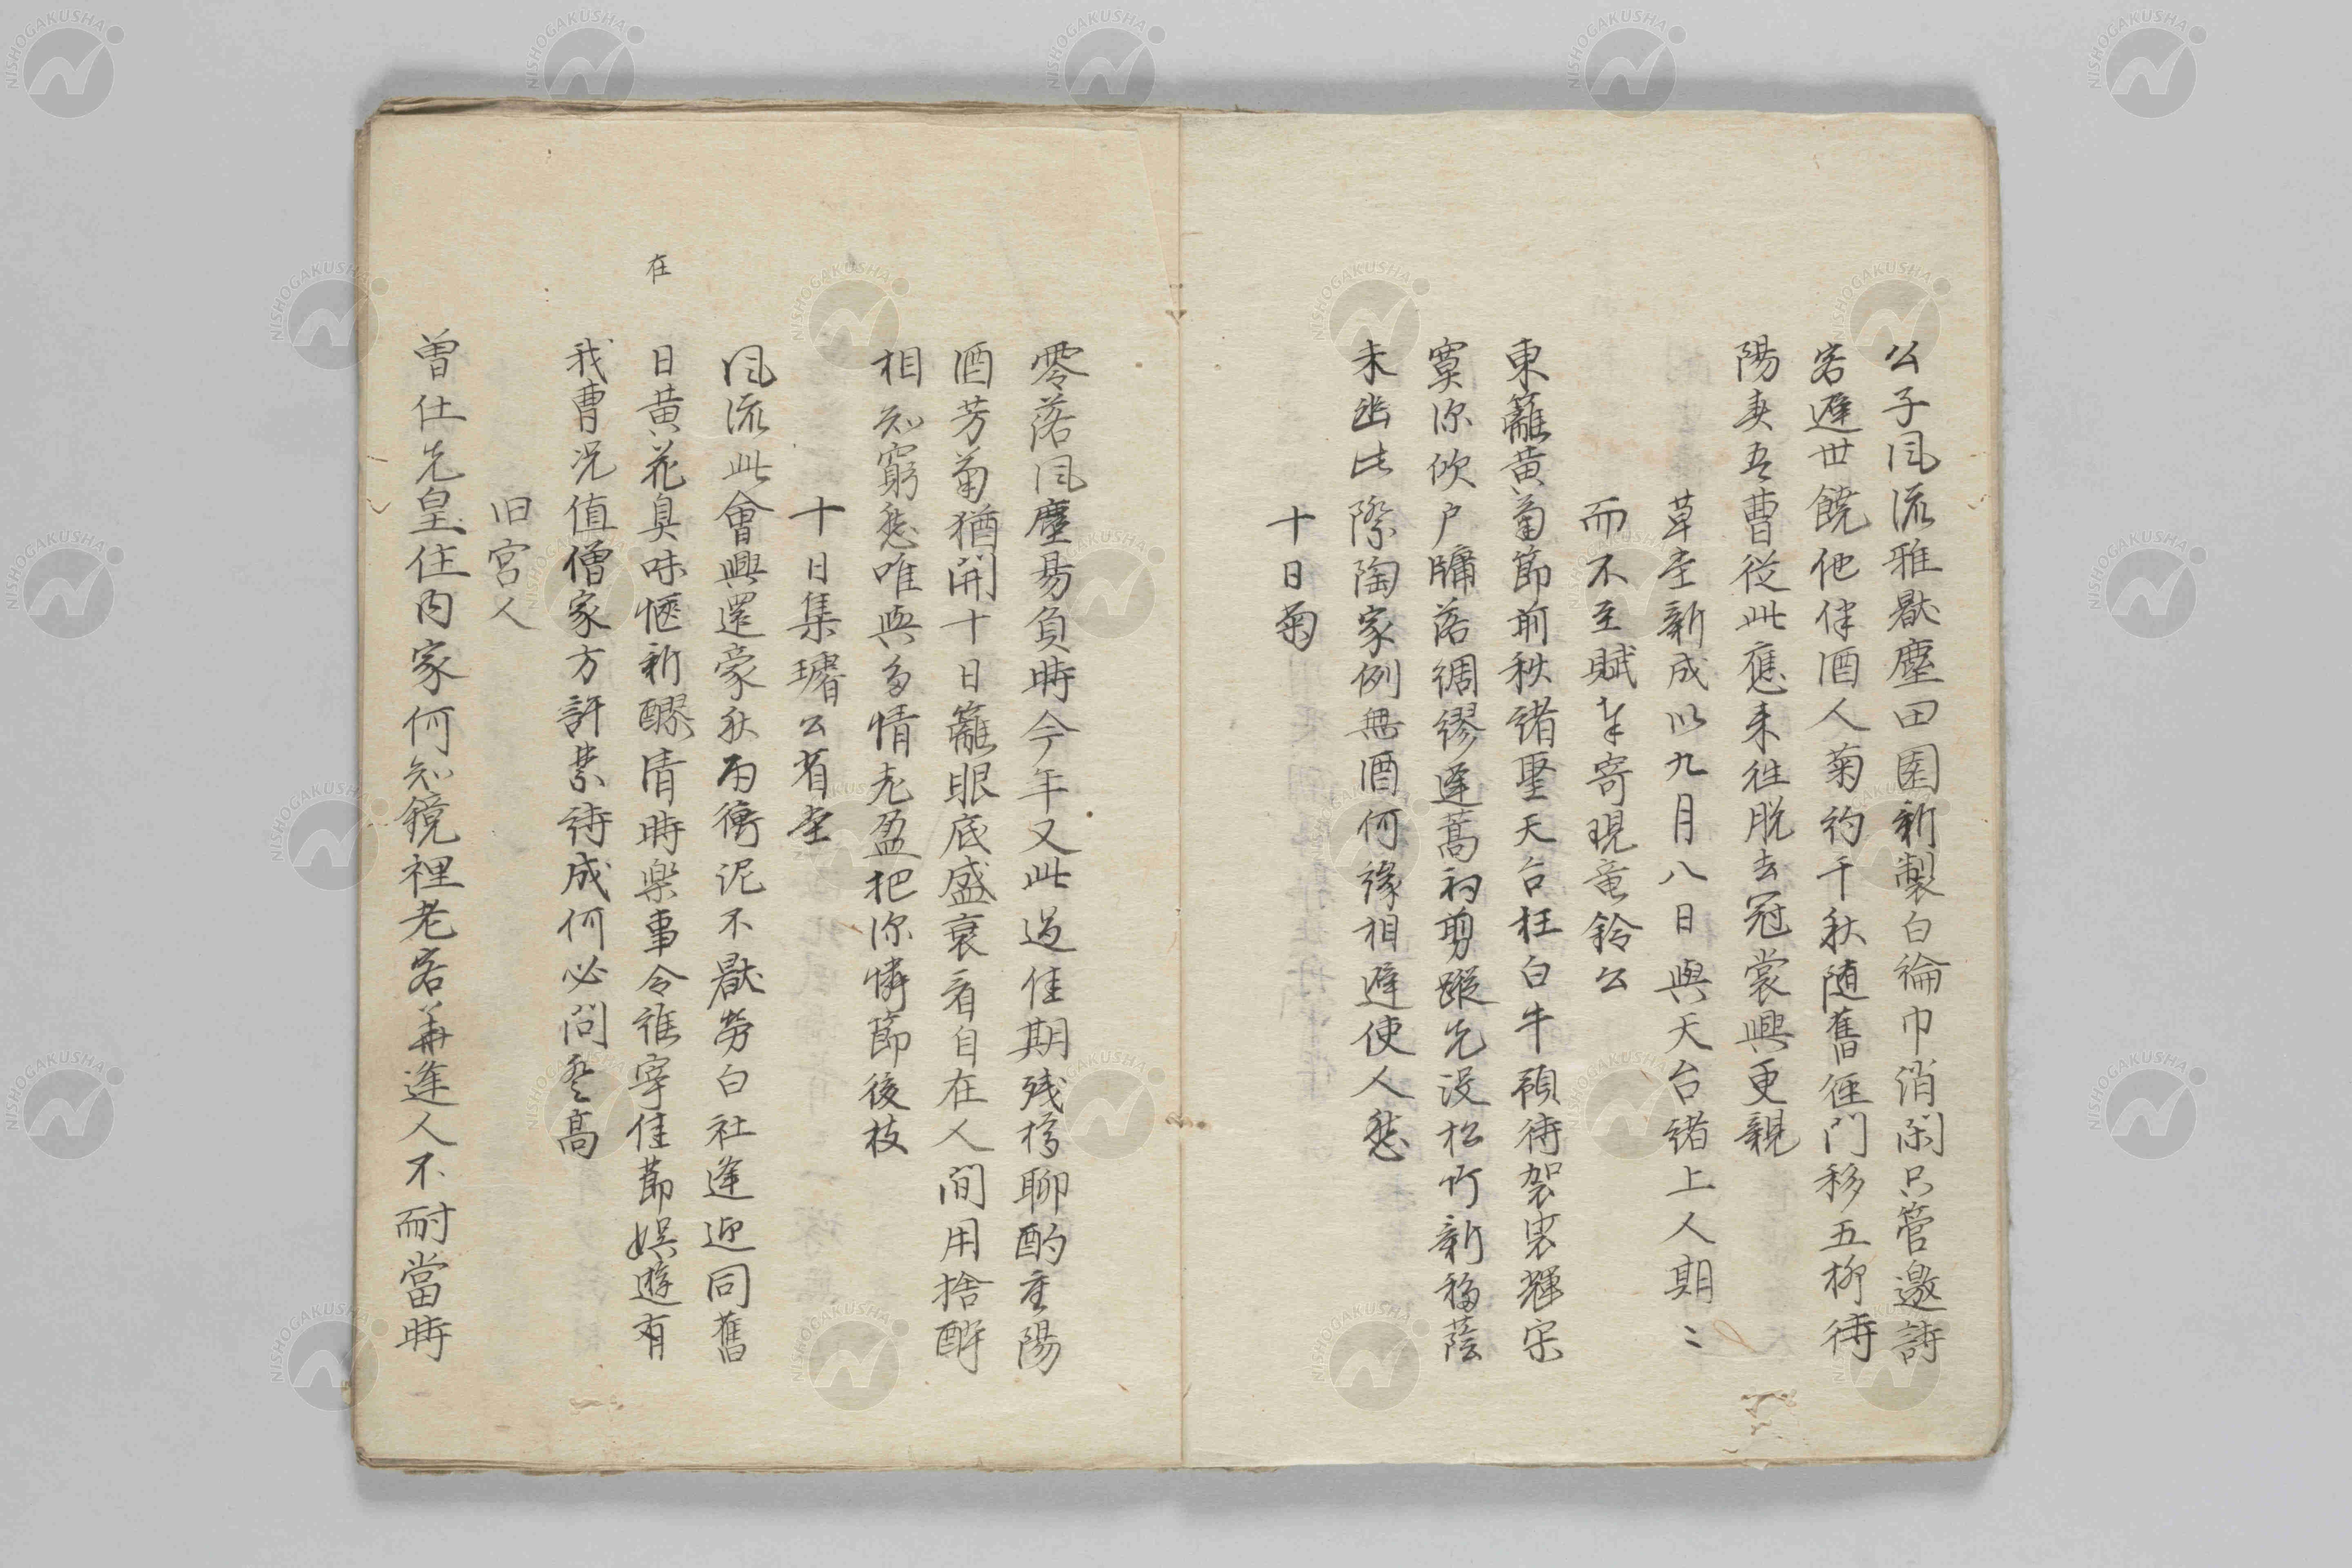 公子风流雅厭塵田園新製白綸巾消閑只管邀詩
客避世饒他伴酒人菊約千秋随舊徑門移五柳待
陽夹吾曹從此應来往脱去冠裳興更親
草堂新成以九月八日與天台緒上人期〻
而不至賦半寄現竜鈴公
東籬黄菊節前秋諸聖天台枉白牛預待袈裟輝宗
寞深吹户牖落綢繆蓬蒿初剪蹤先没松竹新移蔭
未幽此際陶家例無酒何縁相避使人愁
十日菊
零落风塵易負時今年又此過佳期残樽聊酌重陽
酒芳菊猶開十日籬眼底盛衰看自在人間用捨醉
相知窮愁唯與多情老盈把深憐節後枝
十日集璿公省堂
风流此會興還豪秋雨衝泥不厭勞白社逢迎同舊
在
日黄花臭味愜新醪清時楽事令誰宰佳節娯遊有
我曹况值僧家方許禁詩成何必問登高
旧宮人
曽仕先皇住内家何知鏡裡老容華逢人不耐當時
NISHOGAKUSHA